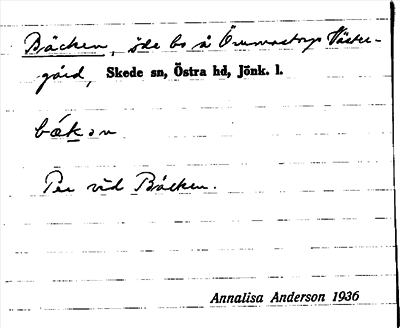 Bäcken, öde bs å Örumastorps Väster-
gård, Skede sn, Östra hd, Jönk. l.
bækən
Per vid Bäcken.
Annalisa Anderson 1936